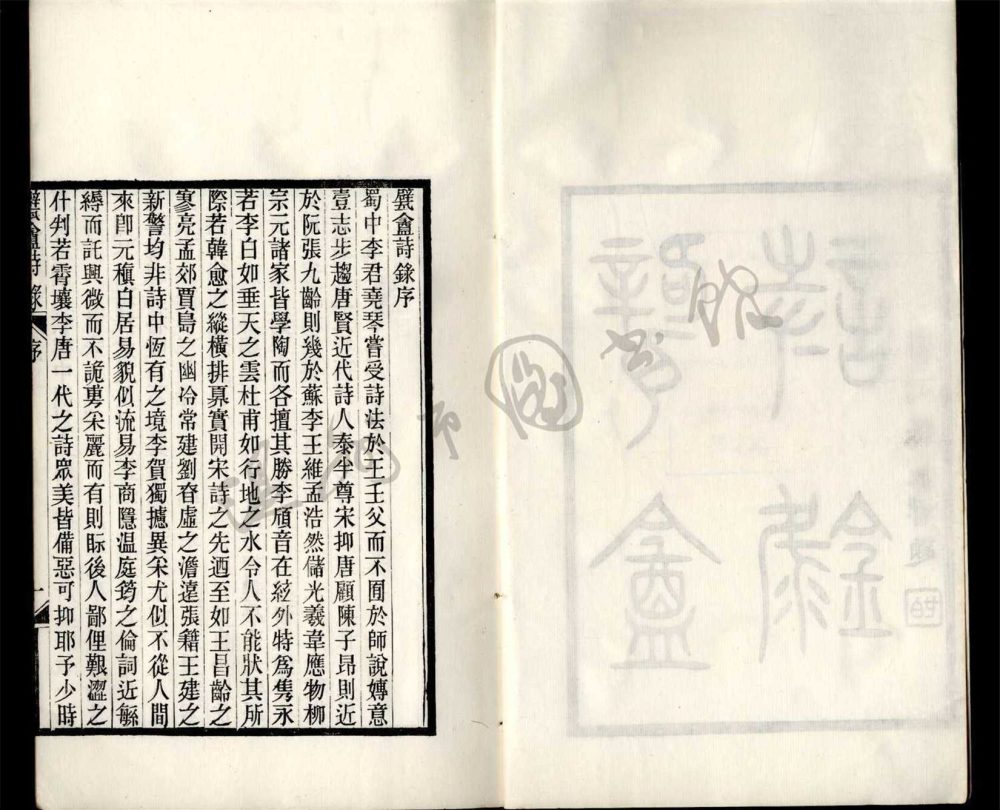 龔盦詩錄序
蜀中李君堯琴嘗受詩法於王壬父而不囿於師說嫥意
壹志步趨唐賢近代詩人泰半尊宋抑唐顧陳子昂則近
於阮張九齡則幾於蘇李王維孟浩然儲光羲韋應物柳
宗元諸家皆學陶而各擅其勝李頎音在絃外特為雋永
若李白如垂天之雲杜甫如行地之水令人不能狀其所
際若韓愈之縱橫排奡實開宋詩之先迺至如王昌齡之
寥亮孟郊賈島之幽冷常建劉眘虛之澹遠張籍王建之
新警均非詩中恆有之境李賀獨摅異采尤似不從人間
來卽元稹白居易貌似流易李商隱温庭筠之倫詞近緐
縟而託興微而不詭旉采麗而有則眎後人鄙俚艱澀之
什判若霄壤李唐一代之詩眾美皆備惡可抑耶予少時
盦詩錄
序
一